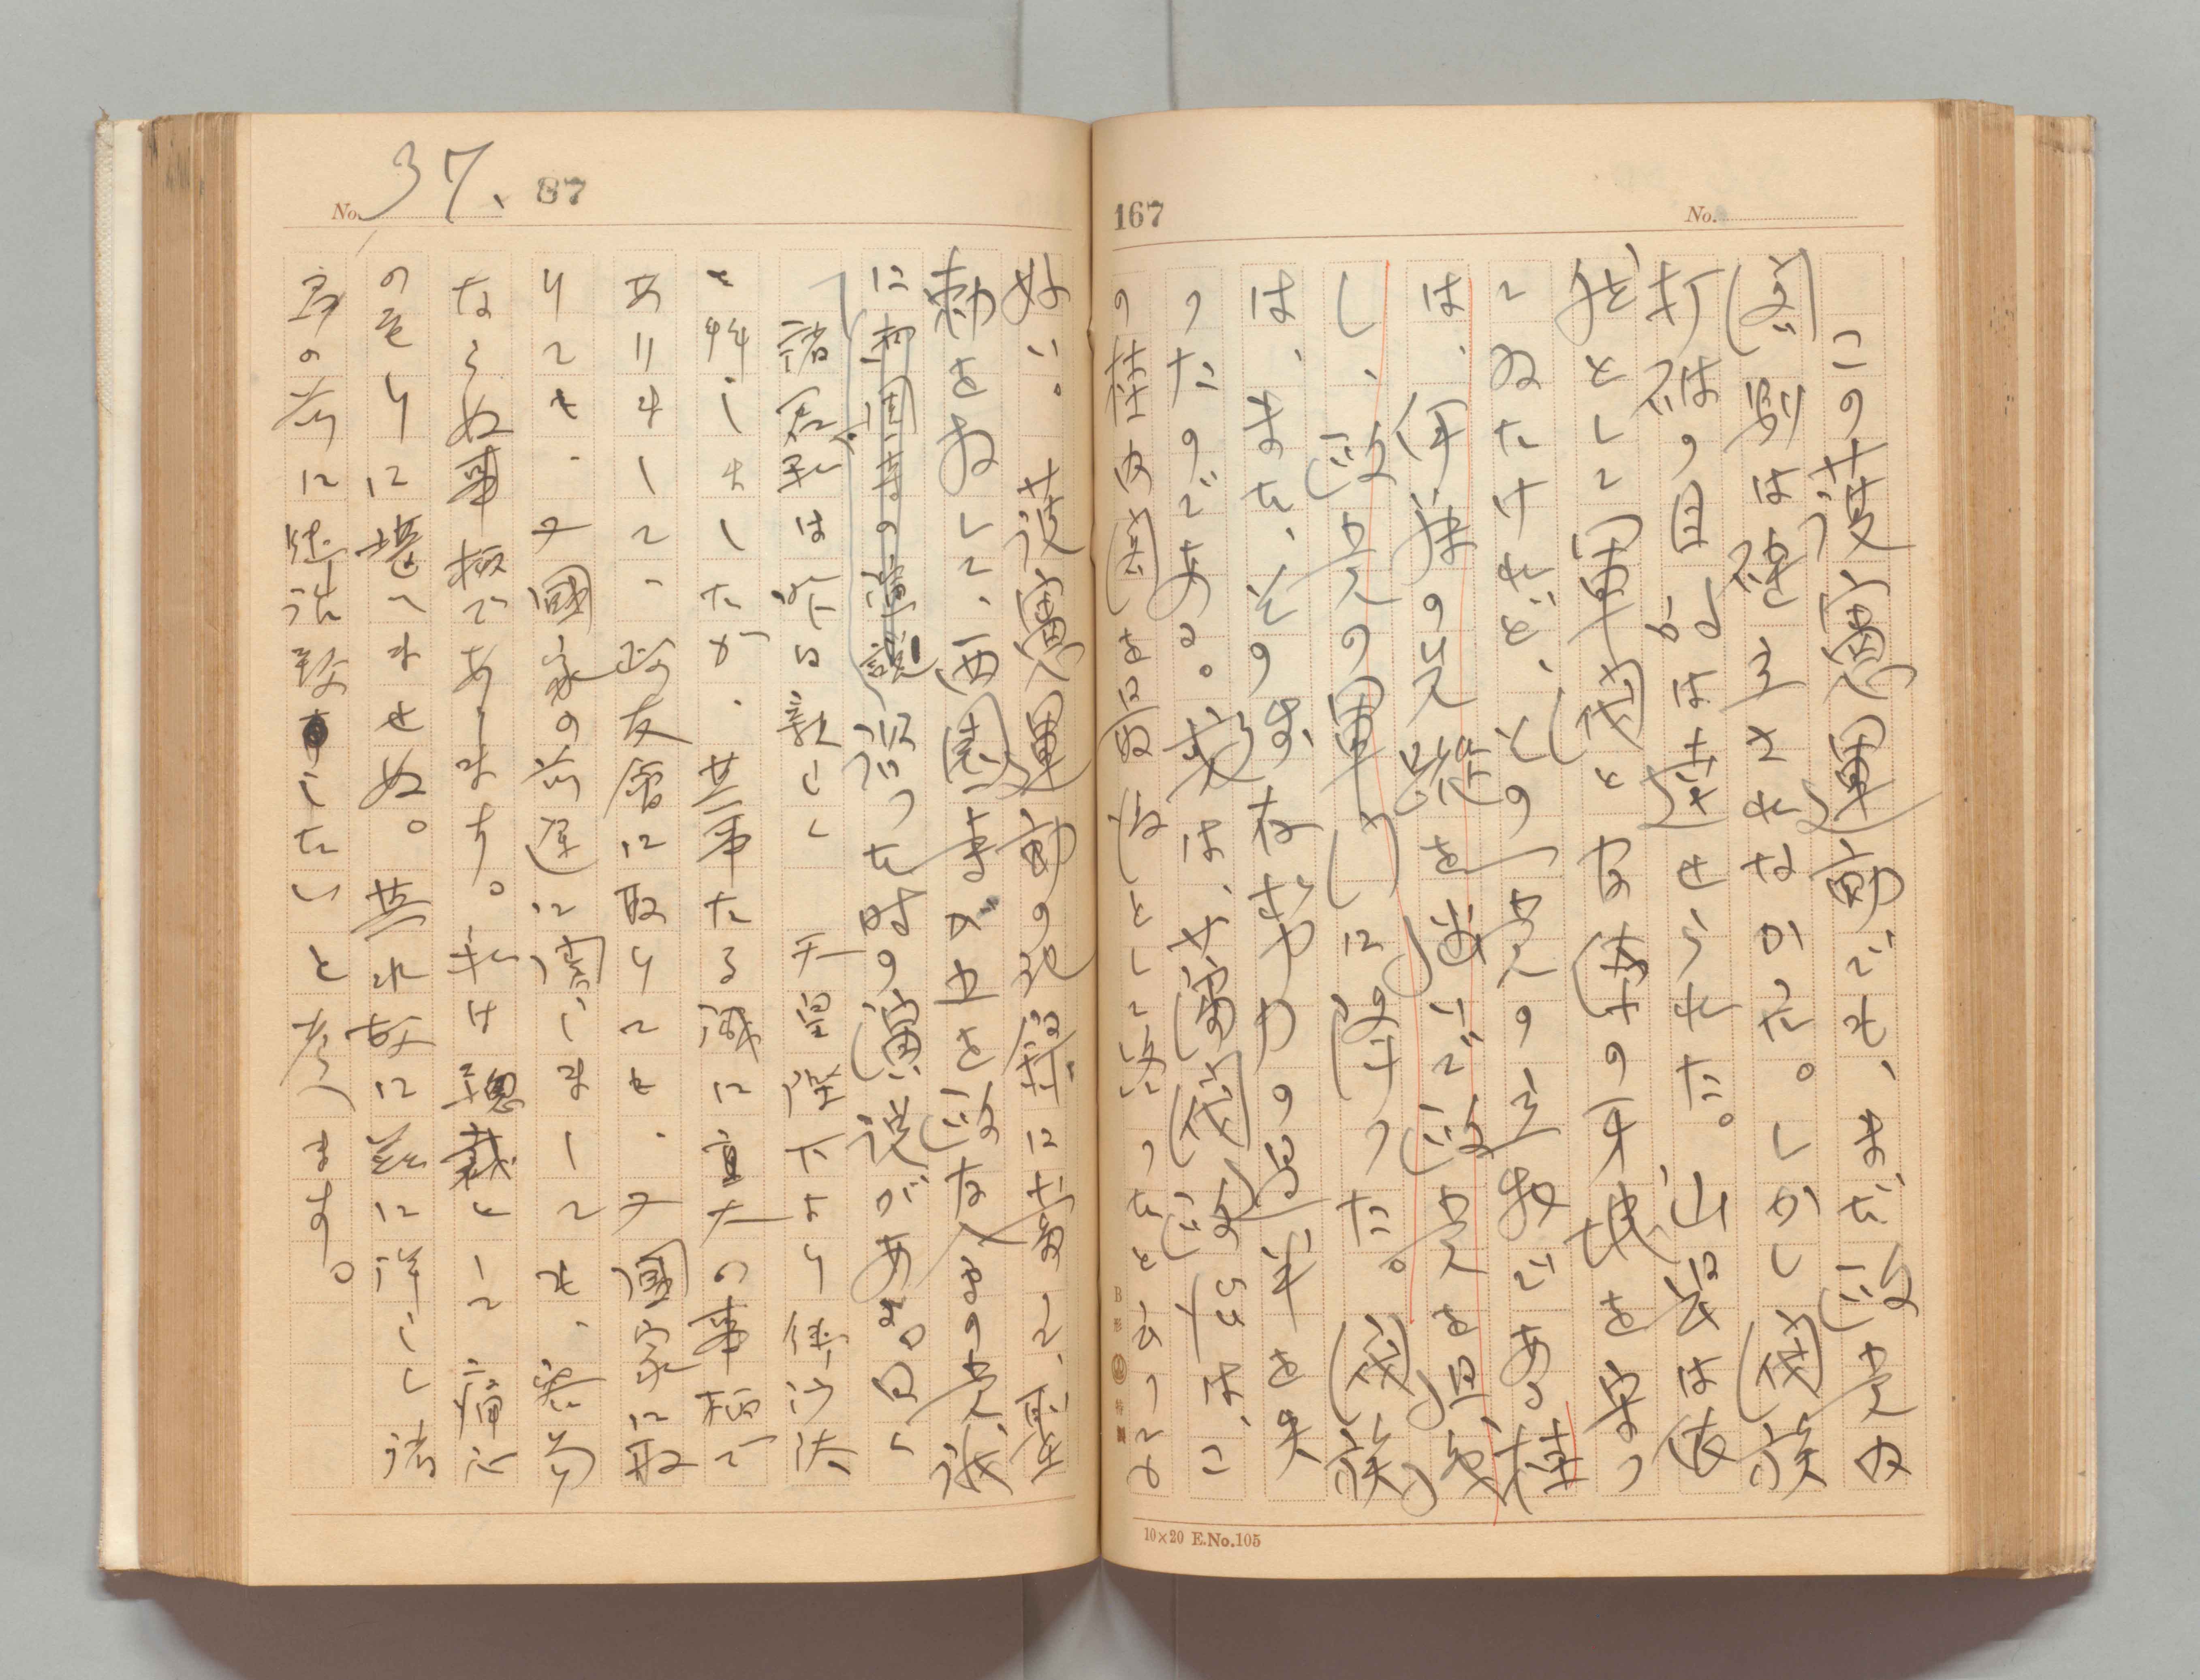 167
No.
この護憲運動でも、まだ政党内
閣制は確立されなかった。しかし閥族
打破の目的は達せられた。山县は依
然として軍閥と官僚の牙城を守っ
てゐたけれど、その一党の立物である桂
は、伊藤の先蹤を追いで政党を組織
し、政党の軍門に降つた。閥族
は、また、その生存勢力の過半を失
つたのである。或は、藩閥政治は、こ
の桂内閣を最後として終つたと言つても
B形 特製
10×20 E.No.105
No. 37. 87
好い。護憲運動の記録に於て、聖
勅をおして、西園寺が中止を政友会の党議
に諮つた時の演説がある。曰く
諸君、私は昨日親しく 天皇陛下より御沙汰
を拝しましたが、其事たる誠に重大の事柄で
ありまして、政友會に取りても、又國家に取
りても、又國家の前途に関しましても、容易
ならぬ事柄であります。私は總裁として痛心
の至りに堪へませぬ。其れ故に茲に詳しく諸
君の前に御話致したいと考へます。